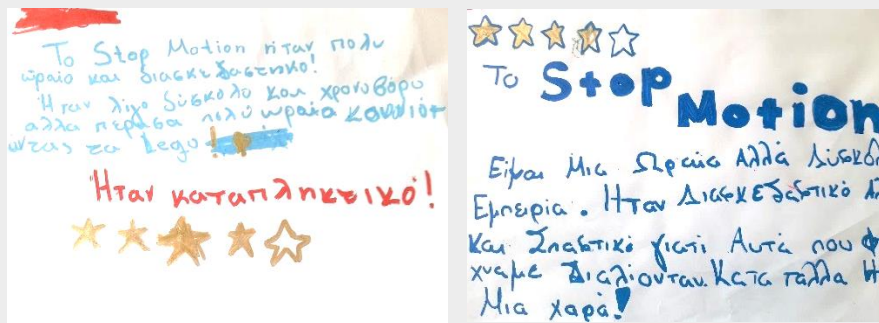 Το Stop Motion ηταν πολυ
ωραίο και διασκεδαστηκο!
Ήταν λίγο δύσκολο και χρονοβόρο
αλλα πέρασα πολύ ωραία κουνιόν
ώντας τα Lego!
Ήταν καταπληκτικό!
Το Stop
Motion
Είμαι Μια Ωραία Αλλά Δύσκολ
Εμπειρία. Ήταν Διασκεδαστικό Αλ
Και Σπαστικό γιατί Αυτά που Φ
χναμε Διαλιόνταν. Κατα ταλλα Η
Μια χαρά!